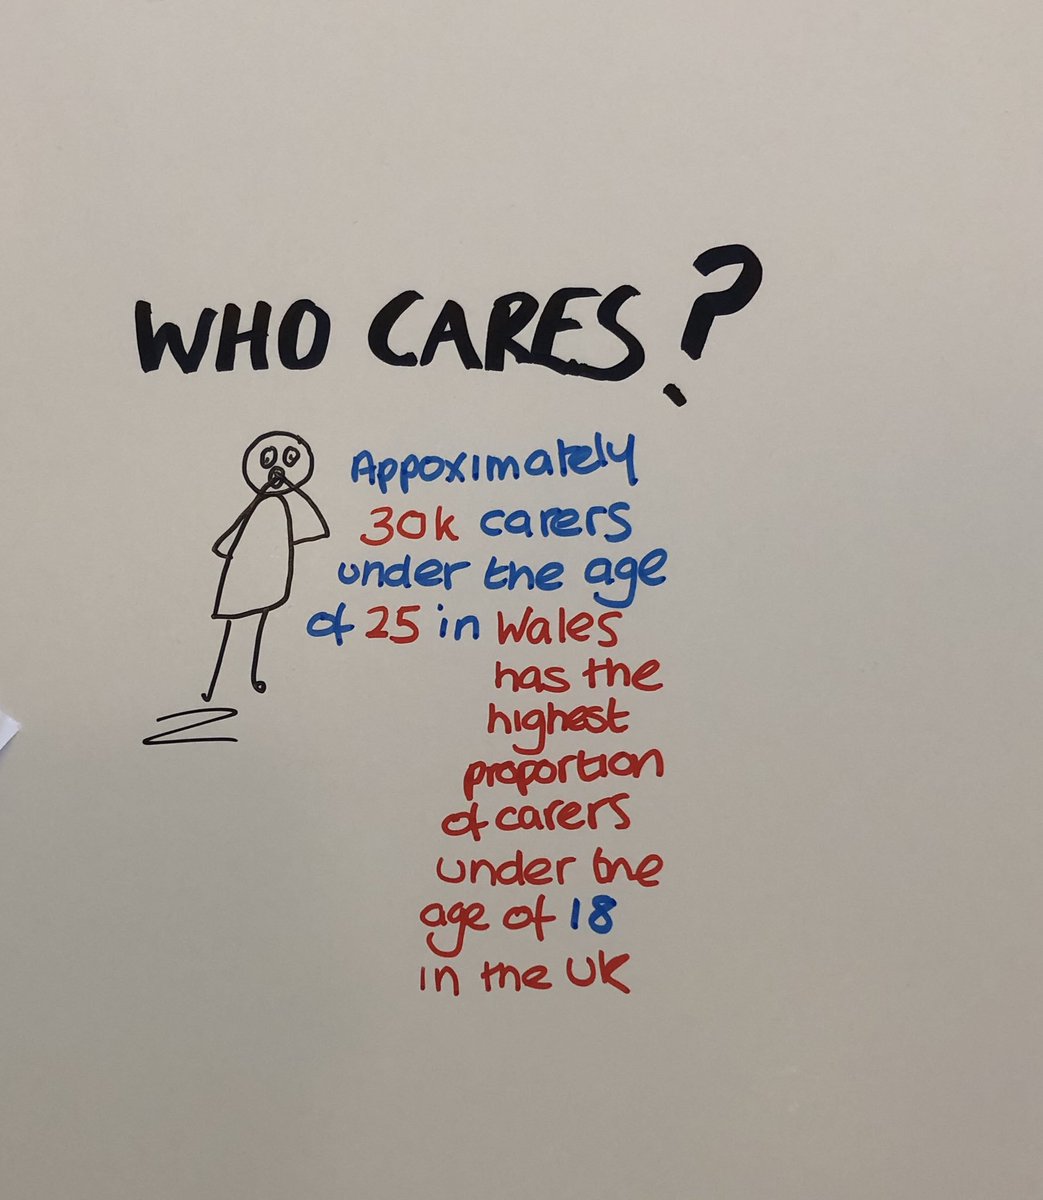 WHO CARES?
Appoximately
30k carers
under the age
of 25 in Wales
has the
highest
proportion
of carers
under the
age of 18
in the UK